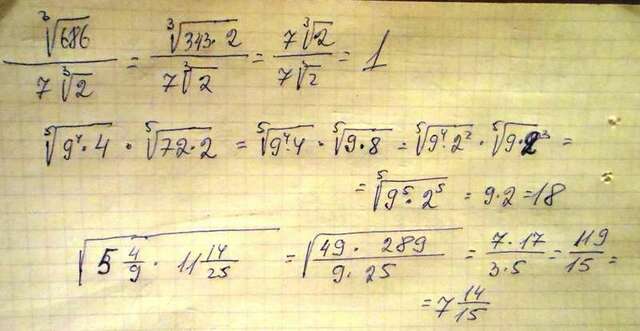 ∛686 / 7∛2 = ∛(343·2) / 7∛2 = 7∛2 / 7∛2 = 1
⁵√(9⁴·4) · ⁵√(72·2) = ⁵√(9⁴·4) · ⁵√(9·8) = ⁵√(9⁴·2²) · ⁵√(9·2³) =
= ⁵√(9⁵·2⁵) = 9·2 = 18
√(5 4/9 · 11 14/25) = √(49 · 289 / 9 · 25) = 7·17 / 3·5 = 119/15 =
= 7 14/15